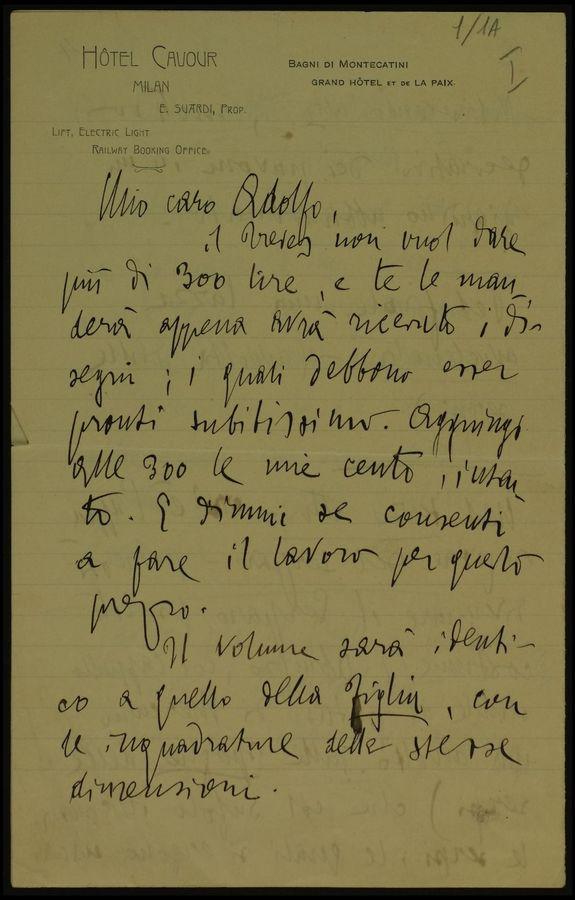 1/1A
I
HÔTEL CAVOUR
MILAN
E. SUARDI, PROP.
LIFT, ELECTRIC LIGHT
RAILWAY BOOKING OFFICE.
BAGNI DI MONTECATINI
GRAND HÔTEL ET DE LA PAIX.
Mio caro Adolfo,
il Treves non vuol dare
più di 300 lire, e te le man-
derà appena avrà ricevuto i di-
segni; i quali debbono esser
pronti subitissimo. Aggiungi
alle 300 le mie cento, intan-
to. E dimmi se consenti
a fare il lavoro per questo
prezzo.
Il volume sarà identi-
co a quello della Figlia, con
le inquadrature delle stesse
dimensioni.